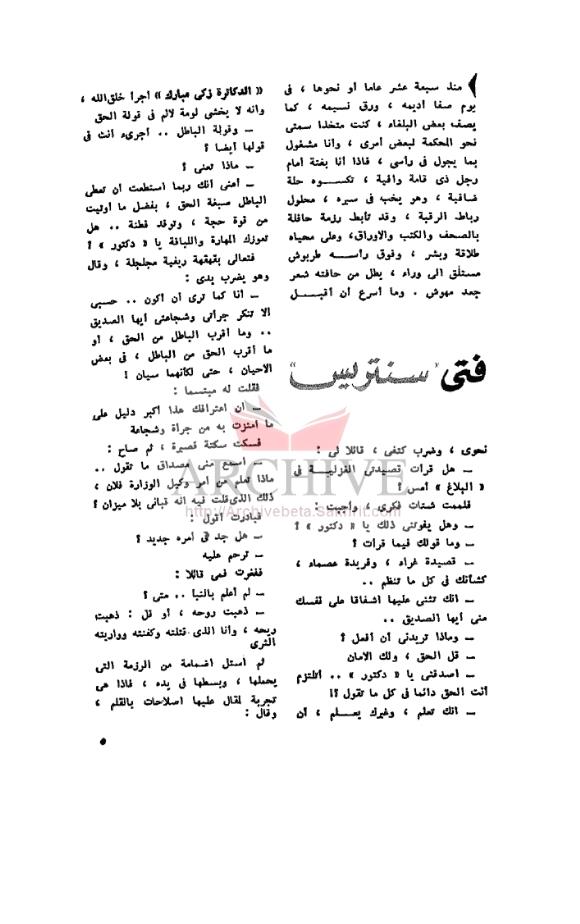 منذ سبعة عشر عاما أو نحوها ، فى
يوم صفا أديمه ، ورق نسيمه ، كما
يصف بعض البلغاء ، كنت متخذا سمتى
نحو المحكمة لبعض أمرى ، وأنا مشغول
بما يجول فى رأسى ، فاذا أنا بغتة أمام
رجل ذى قامة وافية ، تكســوه حلة
ضافية ، وهو يخب فى سيره ، محلول
رباط الرقبة ، وقد تأبط رزمة حافلة
بالصحف والكتب والأوراق، وعلى محياه
طلاقة وبشر ، وفوق رأســه طربوش
مستلق الى وراء ، يطل من حافته شعر
جعد مهوش . وما أسرع أن أقبــل
فتى "سنتريس"
نحوى ، وضرب كتفى ، قائلا لى :
ـ هل قرأت قصيدتى الغزليــة فى
« البلاغ » أمس ؟
فلممت شتات فكرى ، وأجبت :
ـ وهل يفوتنى ذلك يا « دكتور » ؟
ـ وما قولك فيما قرأت ؟
ـ قصيدة غراء ، وفريدة عصماء ،
كشأنك فى كل ما تنظم ..
ـ انك تثنى عليها اشفاقا على نفسك
منى أيها الصديق ..
ـ وماذا تريدنى أن أفعل ؟
ـ قل الحق ، ولك الأمان
ـ أصدقنى يا « دكتور » .. أتلتزم
أنت الحق دائما فى كل ما تقول ؟!
ـ انك تعلم ، وغيرك يعــلم ، أن
« الدكاترة زكى مبارك » أجرأ خلق الله ،
وأنه لا يخشى لومة لائم فى قولة الحق
ـ وقولة الباطل .. أجرىء أنت فى
قولها أيضا ؟
ـ ماذا تعنى ؟
ـ أعنى أنك ربما استطعت أن تعطى
الباطل صبغة الحق ، بفضل ما أوتيت
من قوة حجة ، وتوقد فطنة .. هل
تعوزك المهارة واللباقة يا « دكتور » ؟
فتعالى بقهقهة ريفية مجلجلة ، وقال
وهو يضرب يدى :
ـ أنا كما ترى أن أكون .. حسبى
ألا تنكر جرأتى وشجاعتى أيها الصديق
.. وما أقرب الباطل من الحق ، أو
ما أقرب الحق من الباطل ، فى بعض
الأحيان ، حتى لكأنهما سيان !
فقلت له مبتسما :
ـ ان اعترافك هذا أكبر دليل على
ما امتزت به من جرأة وشجاعة
فسكت سكتة قصيرة ، ثم صاح :
ـ اسمع منى مصداق ما تقول ..
ماذا تعلم من أمر وكيل الوزارة فلان ،
ذلك الذى قلت فيه انه قبانى بلا ميزان ؟
فبادرت أقول :
ـ هل جد فى أمره جديد ؟
ـ ترحم عليه
ففغرت فمى قائلا :
ـ لم أعلم بالنبا .. متى ؟
ـ ذهبت روحه ، أو قل : ذهبت
ريحه ، وأنا الذى قتلته وكفنته وواريته
الثرى
ثم أستل اضمامة من الرزمة التى
يحملها ، وبسطها فى يده ، فاذا هى
تجربة لمقال عليها اصلاحات بالقلم ،
وقال :
ARCHIVE
http://Archivebeta.Sakhrit.com
٥